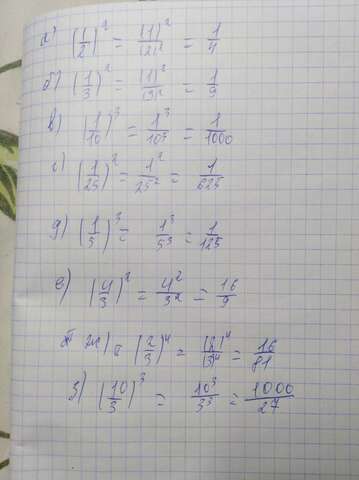 а) (1/2)² = (1)²/(2)² = 1/4
б) (1/3)² = (1)²/(3)² = 1/9
в) (1/10)³ = 1³/10³ = 1/1000
г) (1/25)² = 1²/25² = 1/625
д) (1/5)³ = 1³/5³ = 1/125
е) (4/3)² = 4²/3² = 16/9
ж) (2/3)⁴ = (2)⁴/(3)⁴ = 16/81
з) (10/3)³ = 10³/3³ = 1000/27